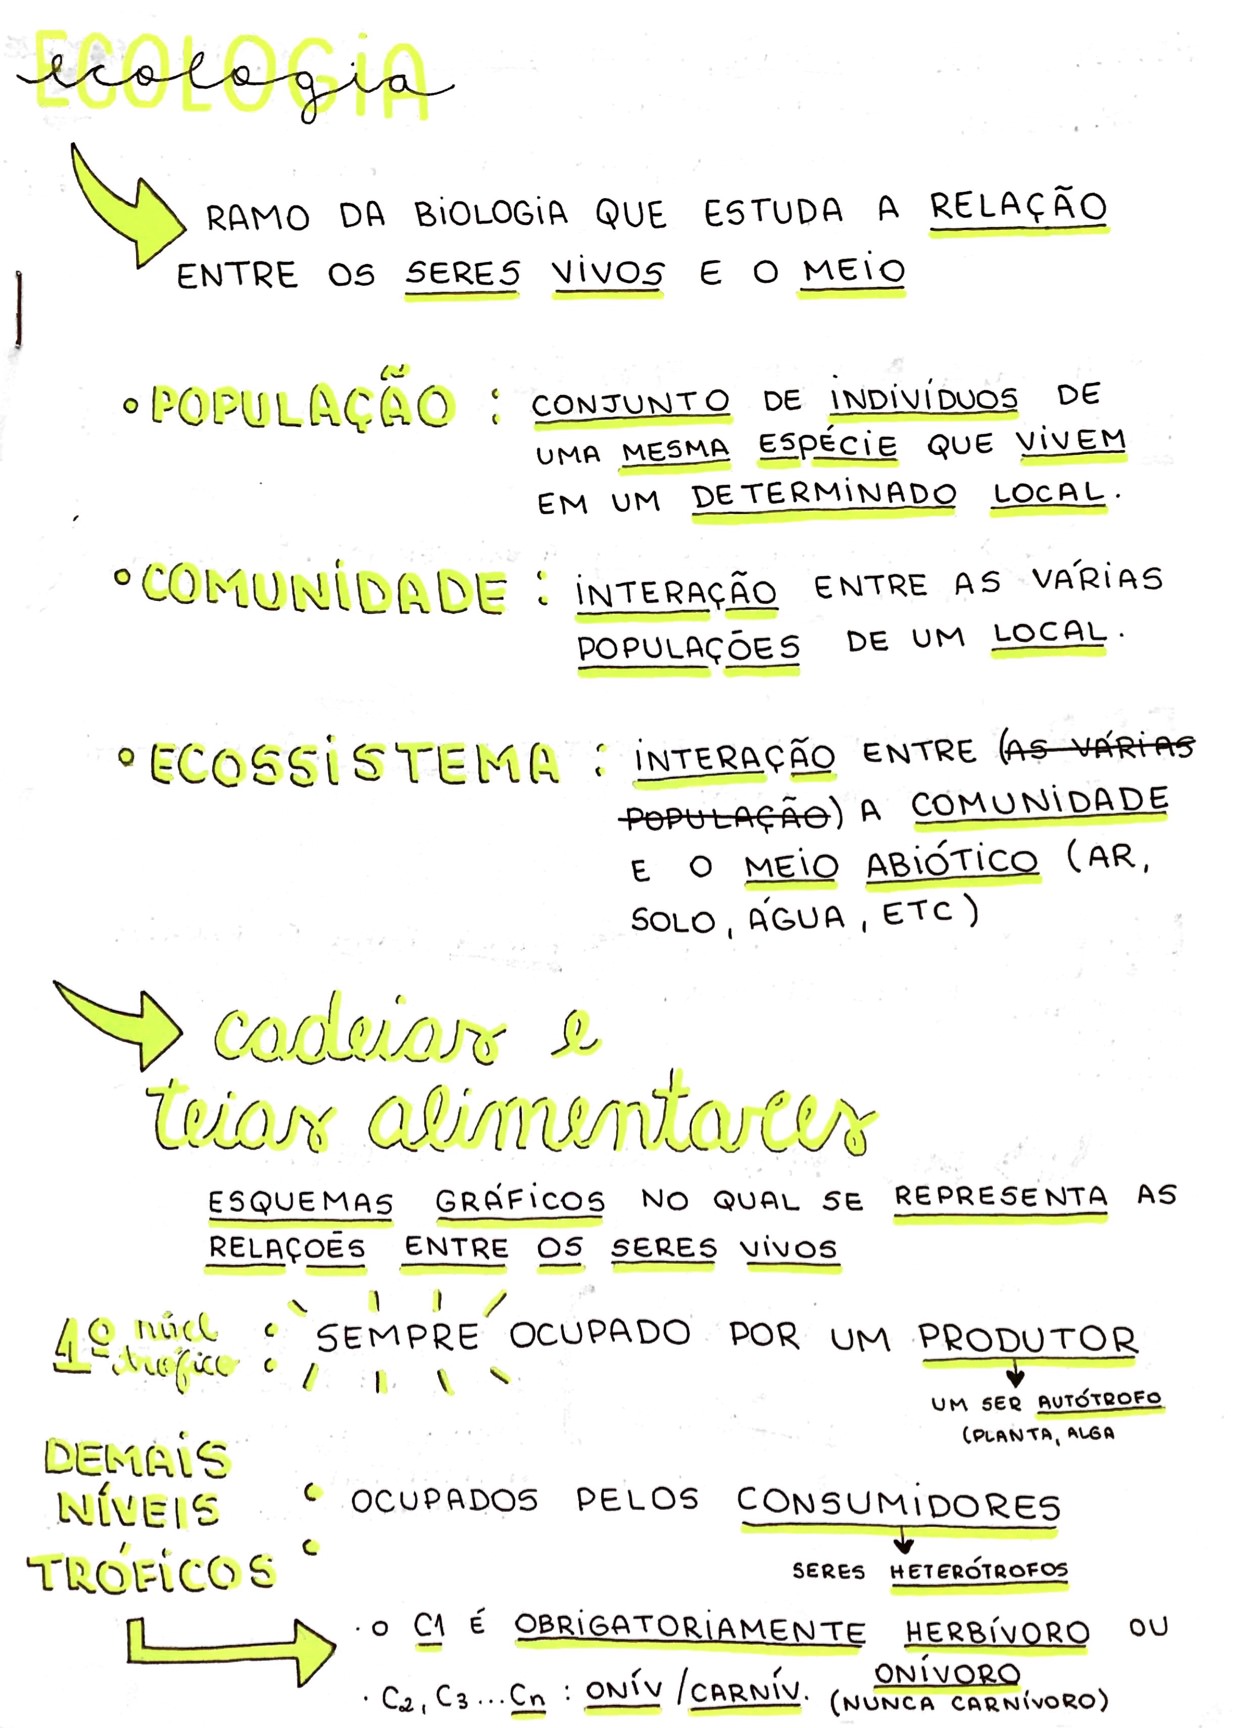 ecologia
RAMO DA BIOLOGIA QUE ESTUDA A RELAÇÃO
ENTRE OS SERES VIVOS E O MEIO
• POPULAÇÃO : CONJUNTO DE INDIVÍDUOS DE
UMA MESMA ESPÉCIE QUE VIVEM
EM UM DETERMINADO LOCAL.
• COMUNIDADE : INTERAÇÃO ENTRE AS VÁRIAS
POPULAÇÕES DE UM LOCAL.
• ECOSSISTEMA : INTERAÇÃO ENTRE (AS VÁRIAS
POPULAÇÃO) A COMUNIDADE
E O MEIO ABIÓTICO (AR,
SOLO, ÁGUA, ETC)
cadeias e
teias alimentares
ESQUEMAS GRÁFICOS NO QUAL SE REPRESENTA AS
RELAÇOẼS ENTRE OS SERES VIVOS
1º nível trófico : SEMPRE OCUPADO POR UM PRODUTOR
UM SER AUTÓTROFO
(PLANTA, ALGA
DEMAIS
NÍVEIS
TRÓFICOS : OCUPADOS PELOS CONSUMIDORES
SERES HETERÓTROFOS
· O C1 É OBRIGATORIAMENTE HERBÍVORO OU
ONÍVORO
(NUNCA CARNÍVORO)
· C2, C3 ... Cn : ONÍV / CARNÍV.